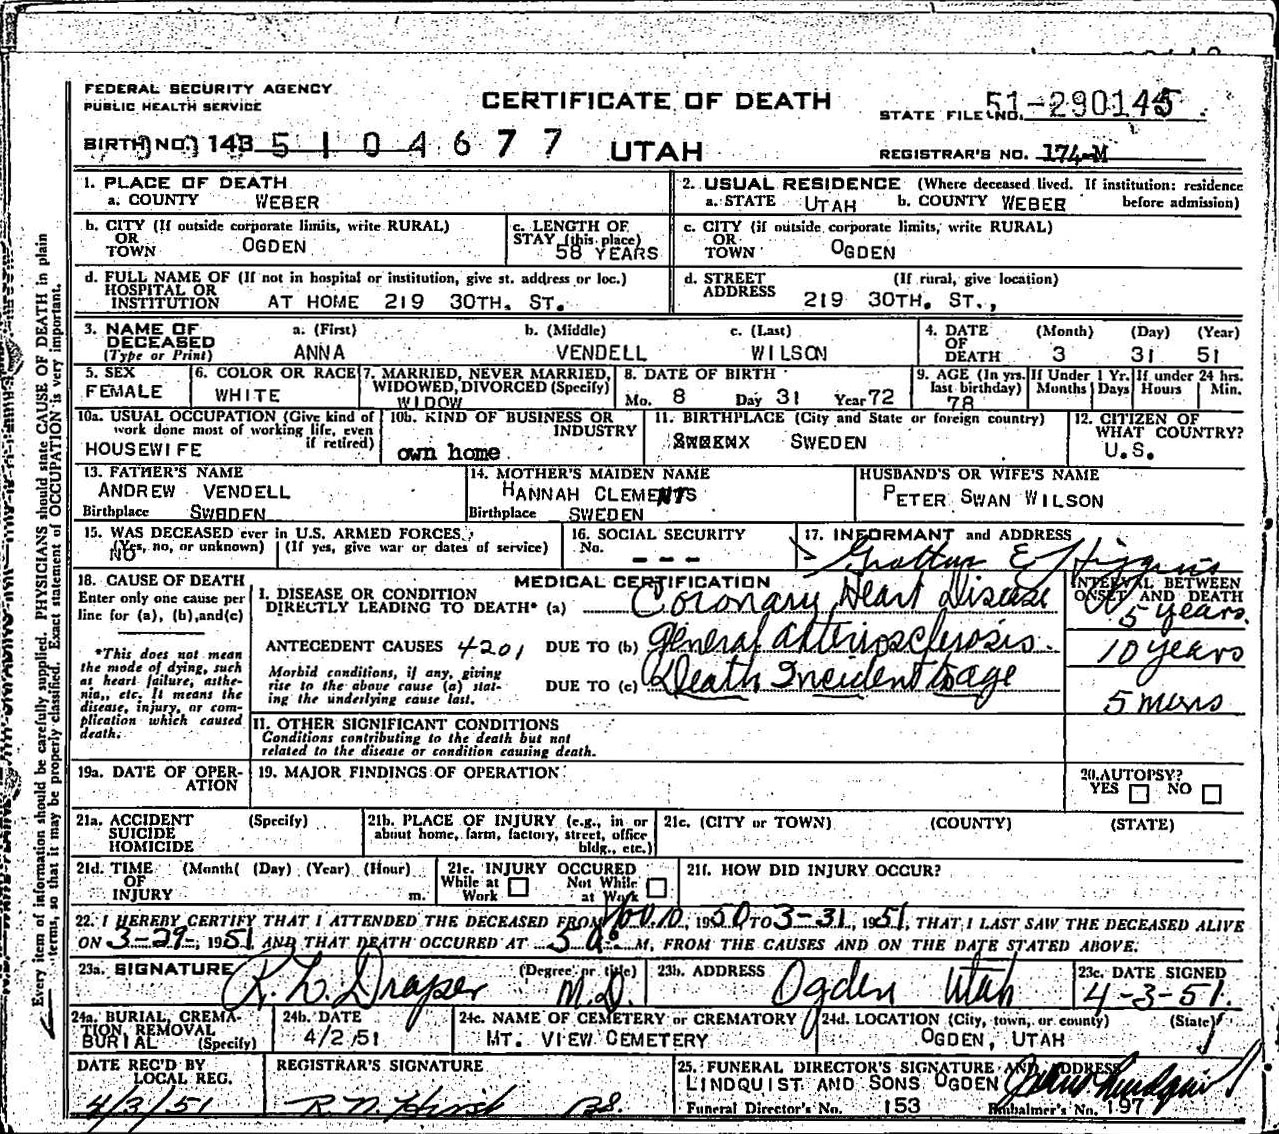 FEDERAL SECURITY AGENCY
PUBLIC HEALTH SERVICE
CERTIFICATE OF DEATH
STATE FILE NO. 51-290145
BIRTH NO. 143 5104677 UTAH
REGISTRAR'S NO. 174-M
1. PLACE OF DEATH
a. COUNTY WEBER
2. USUAL RESIDENCE (Where deceased lived. If institution: residence before admission)
a. STATE UTAH b. COUNTY WEBER
b. CITY (If outside corporate limits, write RURAL)
OR
TOWN OGDEN
c. LENGTH OF
STAY (this place)
58 YEARS
c. CITY (if outside corporate limits, write RURAL)
OR
TOWN OGDEN
d. FULL NAME OF (If not in hospital or institution, give st. address or loc.)
HOSPITAL OR
INSTITUTION AT HOME 219 30TH. ST.
d. STREET (If rural, give location)
ADDRESS 219 30TH. ST.,
3. NAME OF DECEASED
(Type or Print)
a. (First) b. (Middle) c. (Last)
ANNA VENDELL WILSON
4. DATE OF DEATH (Month) (Day) (Year)
3 31 51
5. SEX
FEMALE
6. COLOR OR RACE
WHITE
7. MARRIED, NEVER MARRIED,
WIDOWED, DIVORCED (Specify)
WIDOW
8. DATE OF BIRTH
Mo. 8 Day 31 Year 72
9. AGE (In yrs. last birthday)
78
If Under 1 Yr. Months Days
If under 24 hrs. Hours Min.
10a. USUAL OCCUPATION (Give kind of
work done most of working life, even
if retired)
HOUSEWIFE
10b. KIND OF BUSINESS OR
INDUSTRY
own home
11. BIRTHPLACE (City and State or foreign country)
SWEDEN
12. CITIZEN OF
WHAT COUNTRY?
U.S.
13. FATHER'S NAME
ANDREW VENDELL
Birthplace SWEDEN
14. MOTHER'S MAIDEN NAME
HANNAH CLEMENTS
Birthplace SWEDEN
HUSBAND'S OR WIFE'S NAME
PETER SWAN WILSON
15. WAS DECEASED ever in U.S. ARMED FORCES
(Yes, no, or unknown) (If yes, give war or dates of service)
NO
16. SOCIAL SECURITY
No. - - -
17. INFORMANT and ADDRESS
E Higgins
18. CAUSE OF DEATH
Enter only one cause per
line for (a), (b), and (c)
*This does not mean
the mode of dying, such
as heart failure, asthe-
nia,, etc. It means the
disease, injury, or com-
plication which caused
death.
MEDICAL CERTIFICATION
I. DISEASE OR CONDITION
DIRECTLY LEADING TO DEATH* (a) Coronary Heart Disease
ANTECEDENT CAUSES 4201 DUE TO (b) General arteriosclerosis.
Morbid conditions, if any, giving
rise to the above cause (a) stat-
ing the underlying cause last.
DUE TO (c) Death Incident to age
INTERVAL BETWEEN
ONSET AND DEATH
5 years.
10 years
5 mens
II. OTHER SIGNIFICANT CONDITIONS
Conditions contributing to the death but not
related to the disease or condition causing death.
19a. DATE OF OPER-
ATION
19. MAJOR FINDINGS OF OPERATION
20. AUTOPSY?
YES NO
21a. ACCIDENT (Specify)
SUICIDE
HOMICIDE
21b. PLACE OF INJURY (e.g., in or
about home, farm, factory, street, office
bldg., etc.)
21c. (CITY or TOWN) (COUNTY) (STATE)
21d. TIME (Month( (Day) (Year) (Hour)
OF
INJURY m.
21e. INJURY OCCURED
While at Work Not While at Work
21f. HOW DID INJURY OCCUR?
22. I HEREBY CERTIFY THAT I ATTENDED THE DECEASED FROM 1950 TO 3-31, 1951, THAT I LAST SAW THE DECEASED ALIVE
ON 3-29-, 1951 AND THAT DEATH OCCURED AT 5 A M, FROM THE CAUSES AND ON THE DATE STATED ABOVE.
23a. SIGNATURE (Degree or title)
Draper M.D.
23b. ADDRESS
Ogden Utah
23c. DATE SIGNED
4-3-51.
24a. BURIAL, CREMA-
TION, REMOVAL
BURIAL (Specify)
24b. DATE
4/2/51
24c. NAME OF CEMETERY or CREMATORY
MT. VIEW CEMETERY
24d. LOCATION (City, town, or county) (State)
OGDEN, UTAH
DATE REC'D BY
LOCAL REG.
4/3/51
REGISTRAR'S SIGNATURE
25. FUNERAL DIRECTOR'S SIGNATURE AND ADDRESS
LINDQUIST AND SONS OGDEN
Funeral Director's No. 153 Embalmer's No. 197
Every item of information should be carefully supplied. PHYSICIANS should state CAUSE OF DEATH in plain
terms, so that it may be properly classified. Exact statement of OCCUPATION is very important.